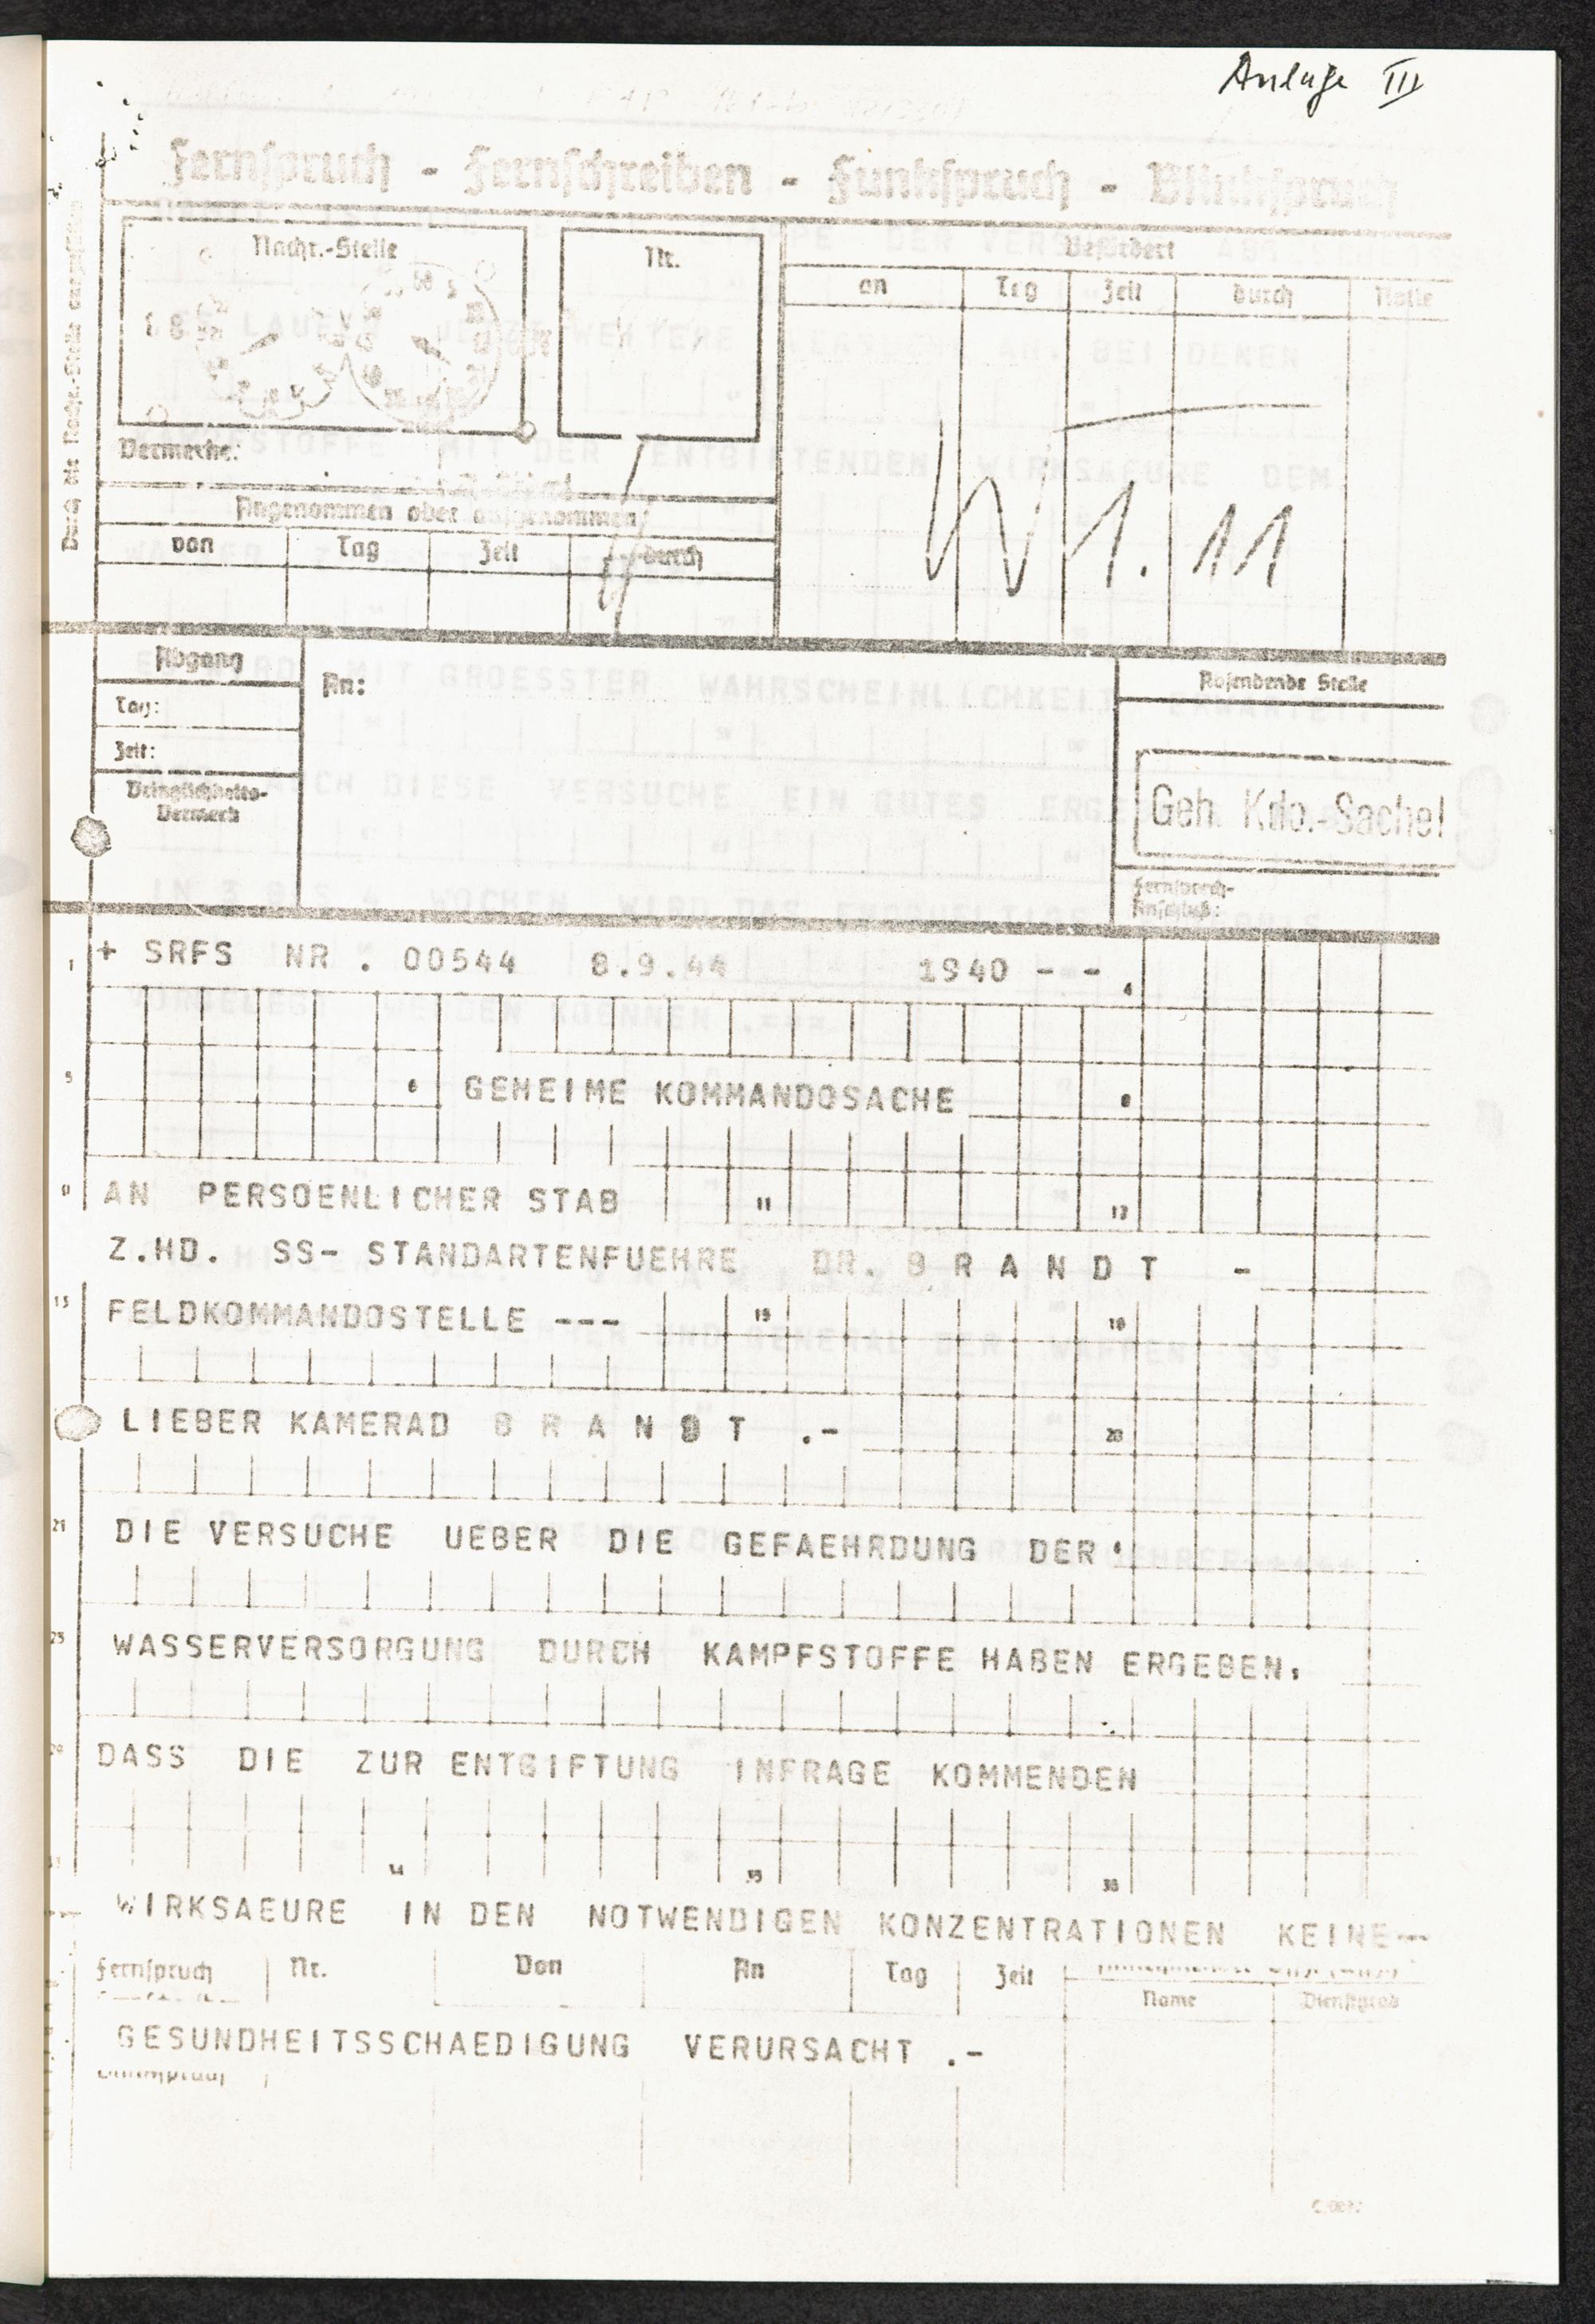 Anlage III
Fernspruch - Fernschreiben - Funkspruch - Blinkspruch
Durch die Nachr.-Stelle auszufüllen
Nachr.-Stelle
Nr.
Befördert
an Tag Zeit durch Rolle
Vermerke:
Angenommen oder aufgenommen
von Tag Zeit durch
Abgang
Tag:
Zeit:
Dringlichkeits-
Vermerk
An:
Absendende Stelle
Geh. Kdo.-Sache!
Fernsprech-
Anschluß:
+ SRFS NR . 00544 8.9.44 1940 - -
GEHEIME KOMMANDOSACHE
AN PERSOENLICHER STAB
Z.HD. SS- STANDARTENFUEHRE DR. B R A N D T -
FELDKOMMANDOSTELLE ---
LIEBER KAMERAD B R A N D T .-
DIE VERSUCHE UEBER DIE GEFAEHRDUNG DER
WASSERVERSORGUNG DURCH KAMPFSTOFFE HABEN ERGEBEN,
DASS DIE ZUR ENTGIFTUNG INFRAGE KOMMENDEN
WIRKSAEURE IN DEN NOTWENDIGEN KONZENTRATIONEN KEINE--
Fernspruch Nr. Von An Tag Zeit
Name Dienstgrad
GESUNDHEITSSCHAEDIGUNG VERURSACHT .-